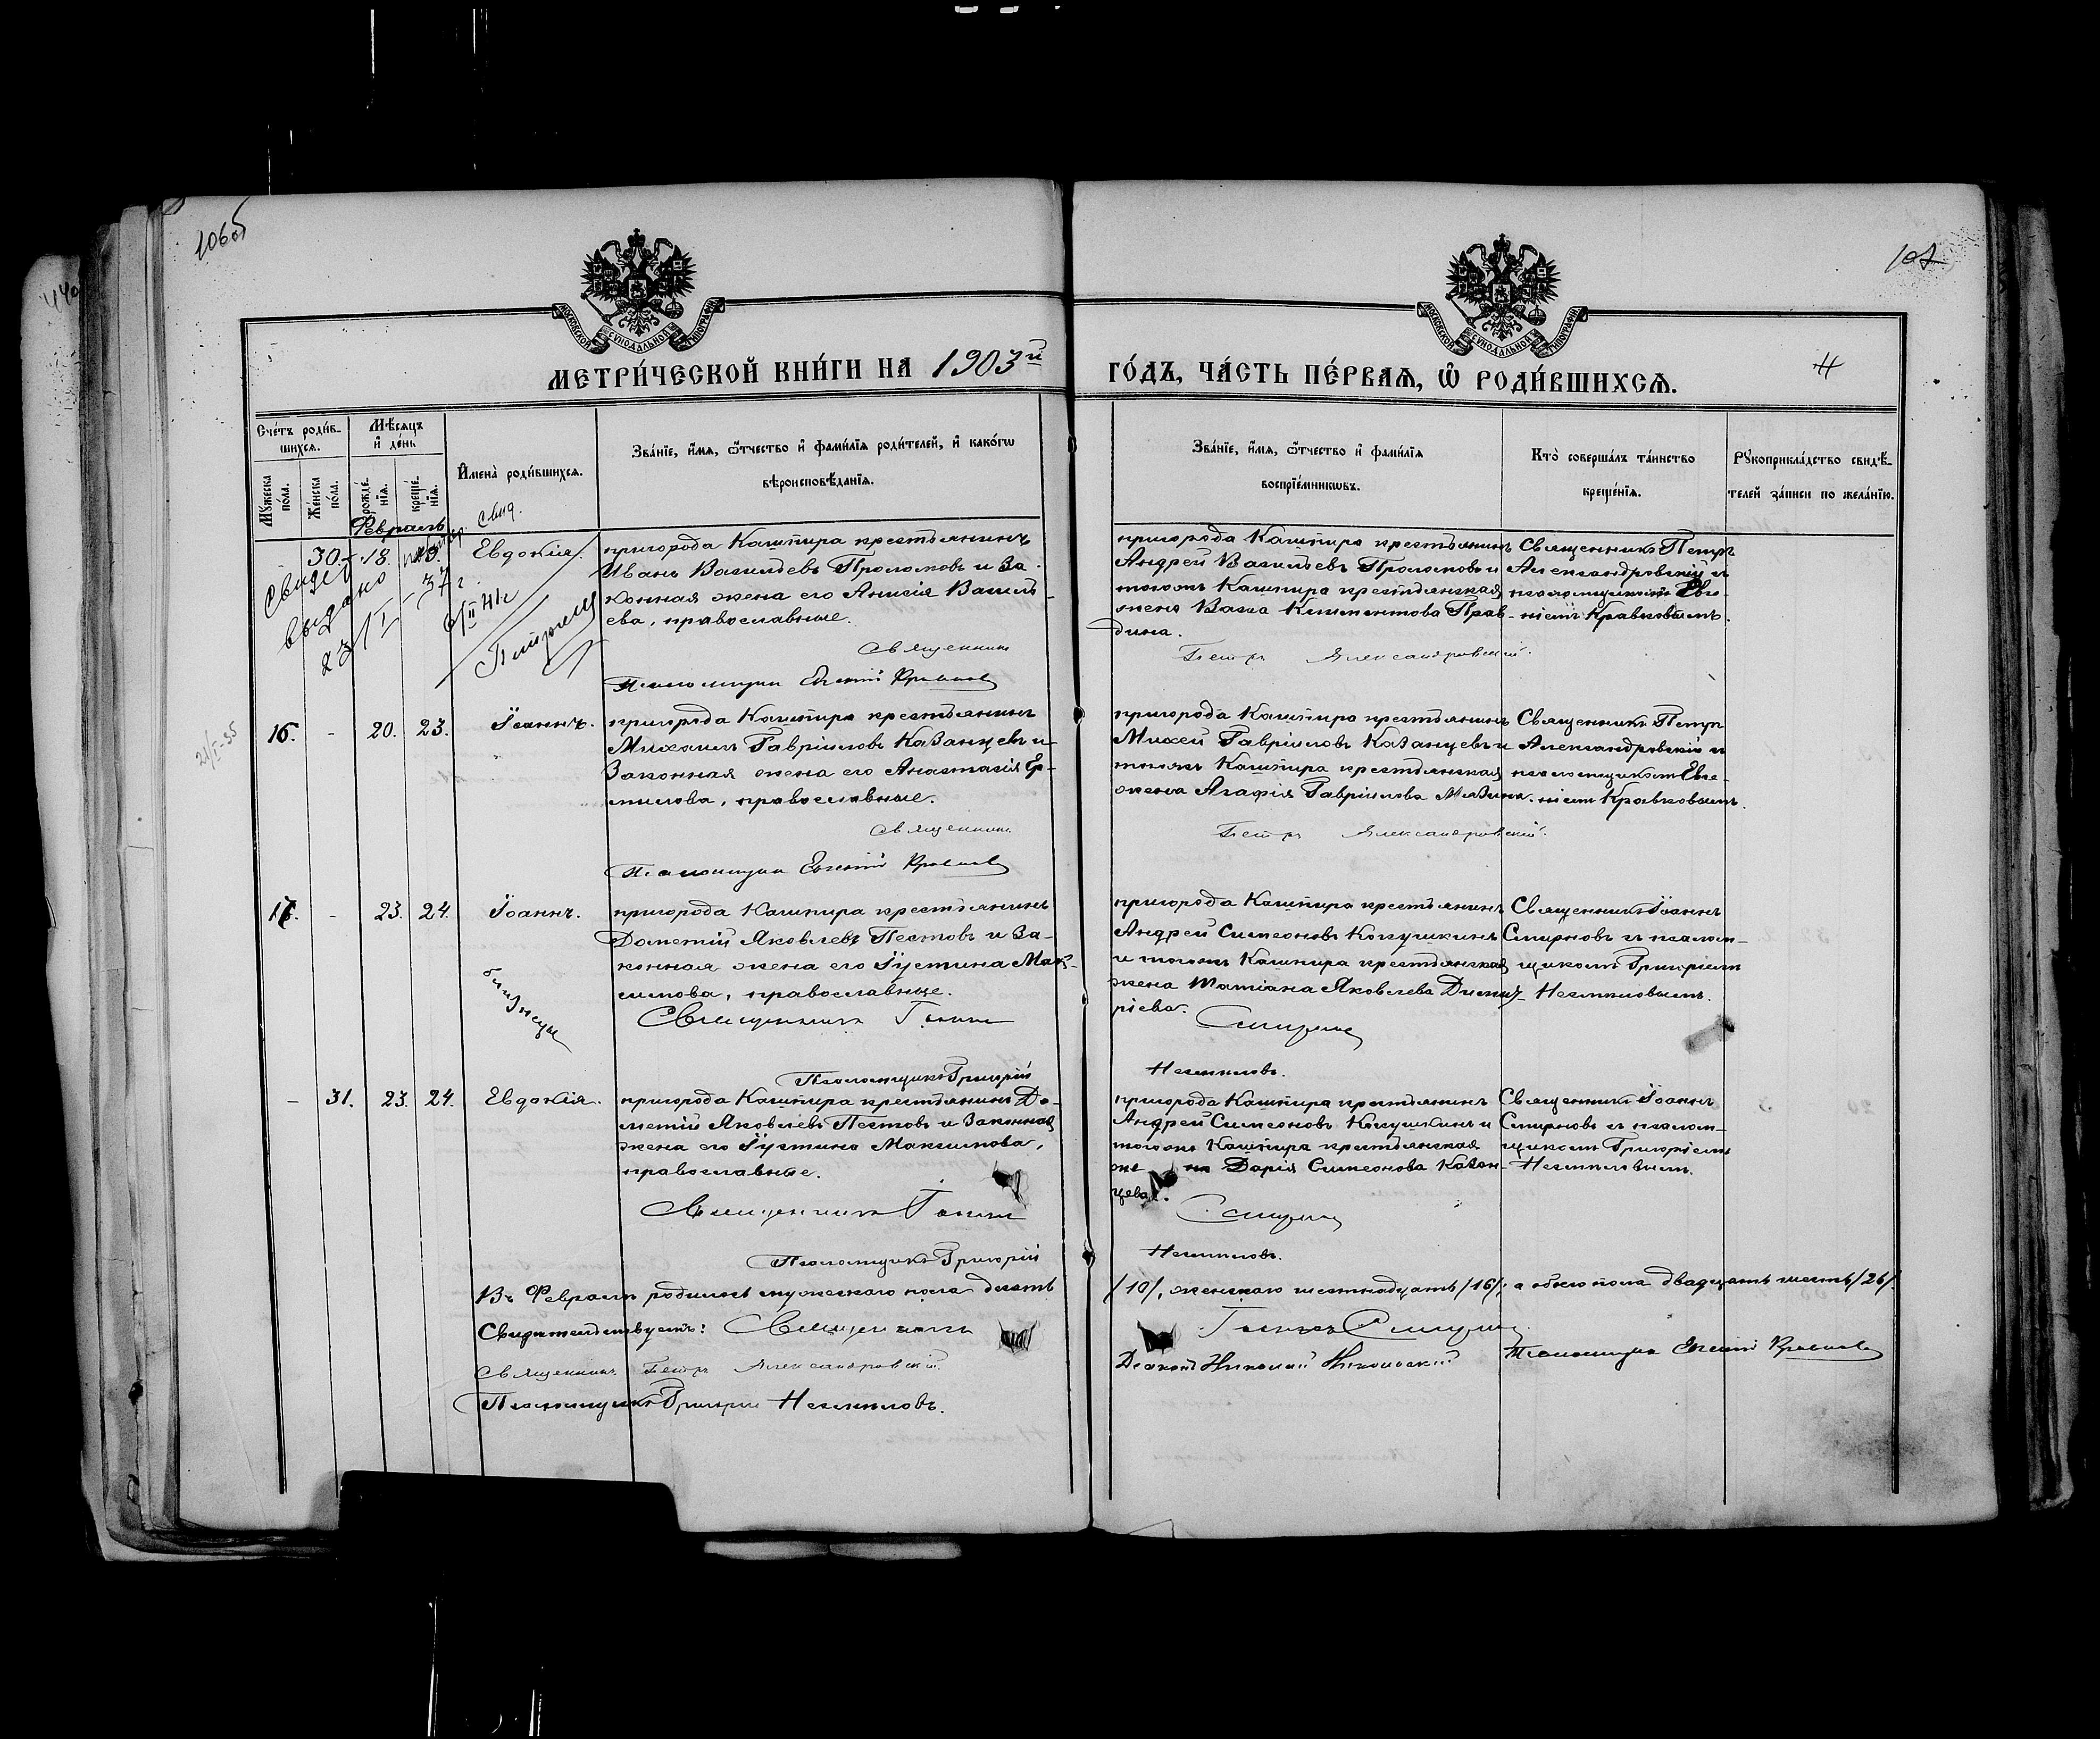 106об
107
МОСКОВСКОЙ СУНОДАЛЬНОЙ ТИПОГРАФІИ
МОСКОВСКОЙ СУНОДАЛЬНОЙ ТИПОГРАФІИ
МЕТРИ́ЧЕСКОЙ КНИ́ГИ НА 1903й ГО́ДЪ, ЧА́СТЬ ПЕ́РВАѦ, Ѡ҆ РОДИ́ВШИХСѦ.
Сче́тъ роди́в-
шихсѧ.
Мѣ́сѧцъ
и҆ де́нь
Мꙋжеска по́ла.
Же́нска по́ла.
рожде́-
нїѧ.
креще́-
нїѧ.
И҆мена̀ роди́вшихсѧ.
Зва́нїе, и҆́мѧ, ѻ҆́тчество и҆ фами́лїѧ роди́телей, и҆ како́гѡ
вѣроисповѣ́данїѧ.
Зва́нїе, и҆́мѧ, ѻ҆́тчество и҆ фами́лїѧ
воспрїе́мникѡвъ.
Кто̀ соверша́лъ та́инство
креще́нїѧ.
Рꙋкоприкла́дство свидѣ́-
телей за́писи по жела́нїю.
Февраль
30. 18. Евдокія.
свид.
Свидет
выдано
23/I - 37 г.
6/II 41г
пригорода Кашпира крестьянинъ
Иванъ Васильевъ Проломовъ и за-
конная жена его Анисія Василь-
ева, православные.
Священникъ
Псаломщикъ Евгеній Кравковъ
пригорода Кашпира крестьянинъ
Андрей Васильевъ Проломовъ и
тогожъ Кашпира крестьянская
жена Васса Климентова Прав-
дина.
Петръ Александровскій.
Священникъ Петръ
Александровскій съ
псаломщикомъ Евге-
ніемъ Кравковымъ.
16. - 20. 23. Іоаннъ.
пригорода Кашпира крестьянинъ
Михаилъ Гавріиловъ Казанцевъ и
законная жена его Анастасія Ер-
милова, православные.
Священникъ
Псаломщикъ Евгеній Кравковъ
пригорода Кашпира крестьянинъ
Михей Гавріиловъ Казанцевъ и
тогожъ Кашпира крестьянская
жена Агафія Гавріилова
Петръ Александровскій.
Священникъ Петръ
Александровскій и
псаломщикомъ Евге-
ніемъ Кравковымъ.
17. - 23. 24. Іоаннъ.
близнецы
пригорода Кашпира крестьянинъ
Дометій Яковлевъ Пестовъ и за-
конная жена его Іустина Мак-
симова, православные.
Священникъ Іоаннъ
Псаломщикъ Григорій
пригорода Кашпира крестьянинъ
Андрей Симеоновъ Кокушкинъ
и тогожъ Кашпира крестьянская
жена Татіана Яковлева Димит-
ріева.
Смирновъ
Несмѣловъ.
Священникъ Іоаннъ
Смирновъ съ псалом-
щикомъ Григоріемъ
Несмѣловымъ.
- 31. 23. 24. Евдокія.
пригорода Кашпира крестьянинъ До-
метій Яковлевъ Пестовъ и законная
жена его Іустина Максимова,
православные.
Священникъ Іоаннъ
Псаломщикъ Григорій
пригорода Кашпира крестьянинъ
Андрей Симеоновъ Кокушкинъ и
тогожъ Кашпира крестьянская
же на Дарія Симеонова Казан-
цева.
Смирновъ
Несмѣловъ.
Священникъ Іоаннъ
Смирновъ съ псалом-
щикомъ Григоріемъ
Несмѣловымъ.
Въ Февралѣ родилось мужескаго пола десять /10/, женскаго шестнадцать /16/; а обоего пола двадцать шесть /26/.
Свидѣтельствуемъ: Священникъ Іоаннъ Смирновъ
Священникъ Петръ Александровскій
Діаконъ Николай Никольскій
Псаломщикъ Евгеній Кравковъ
Псаломщикъ Григорій Несмѣловъ.